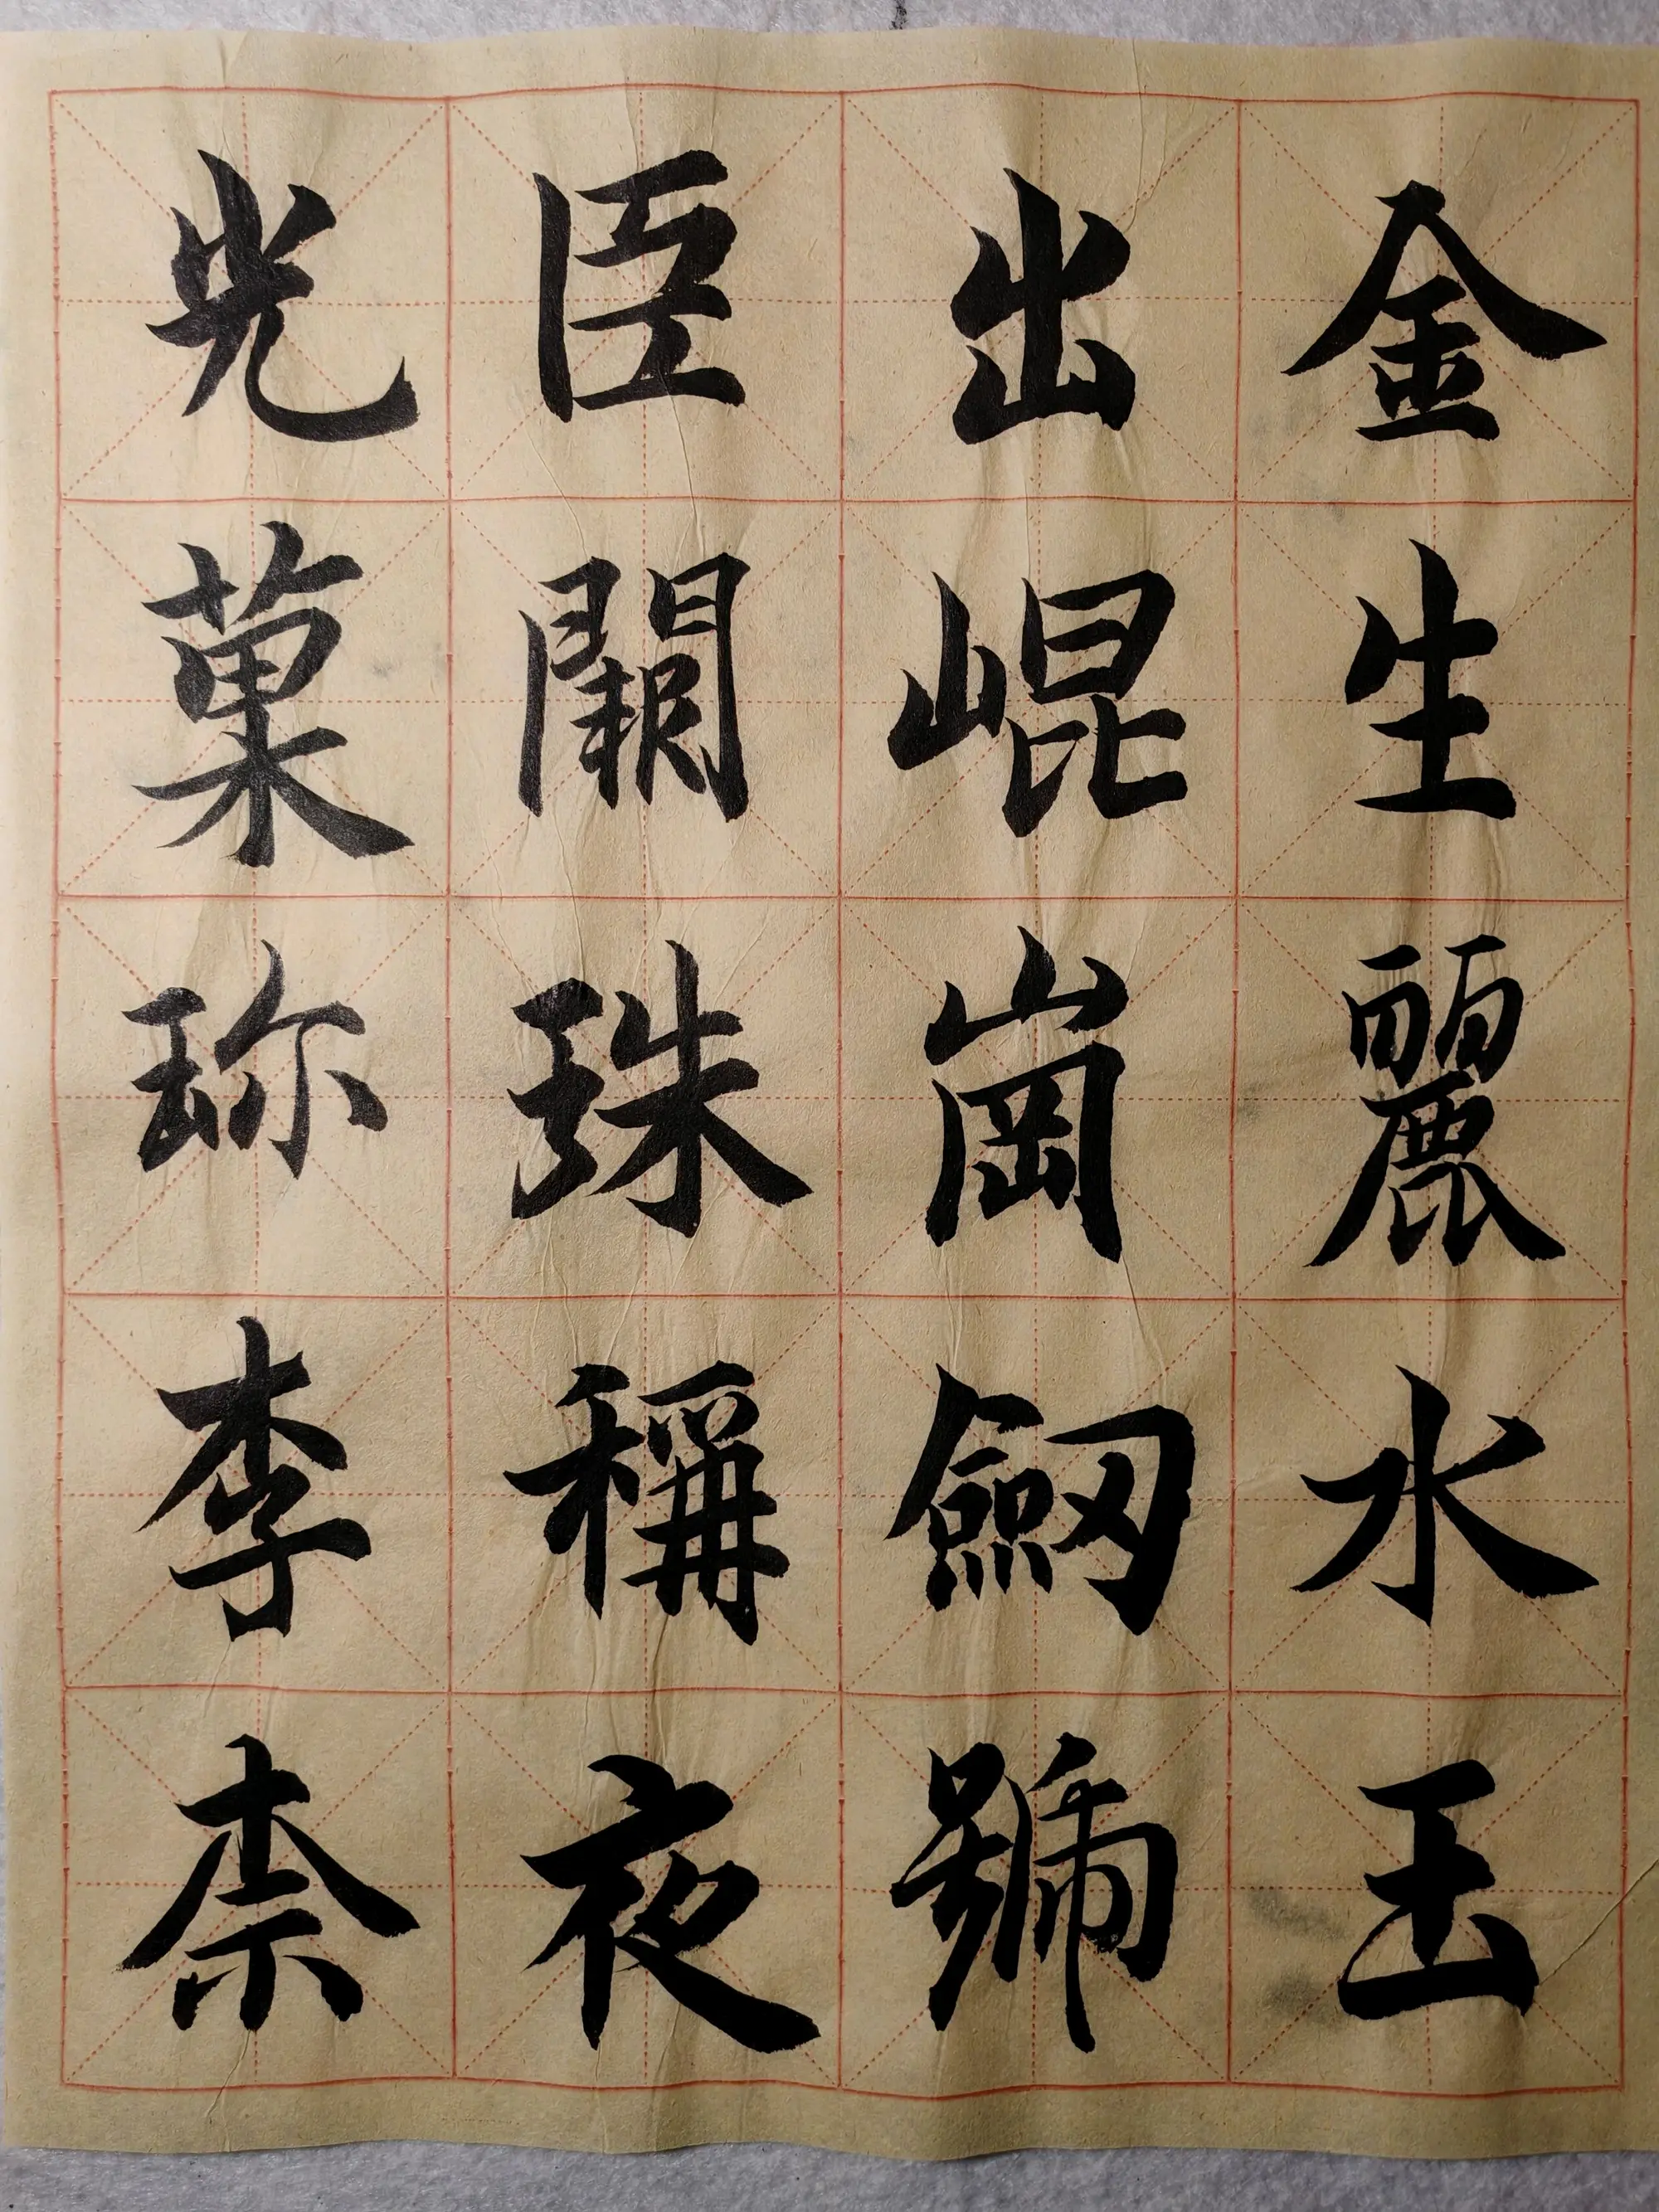 金生麗水玉
出崐崗劒號
臣闕珠稱夜
光菓珎李柰